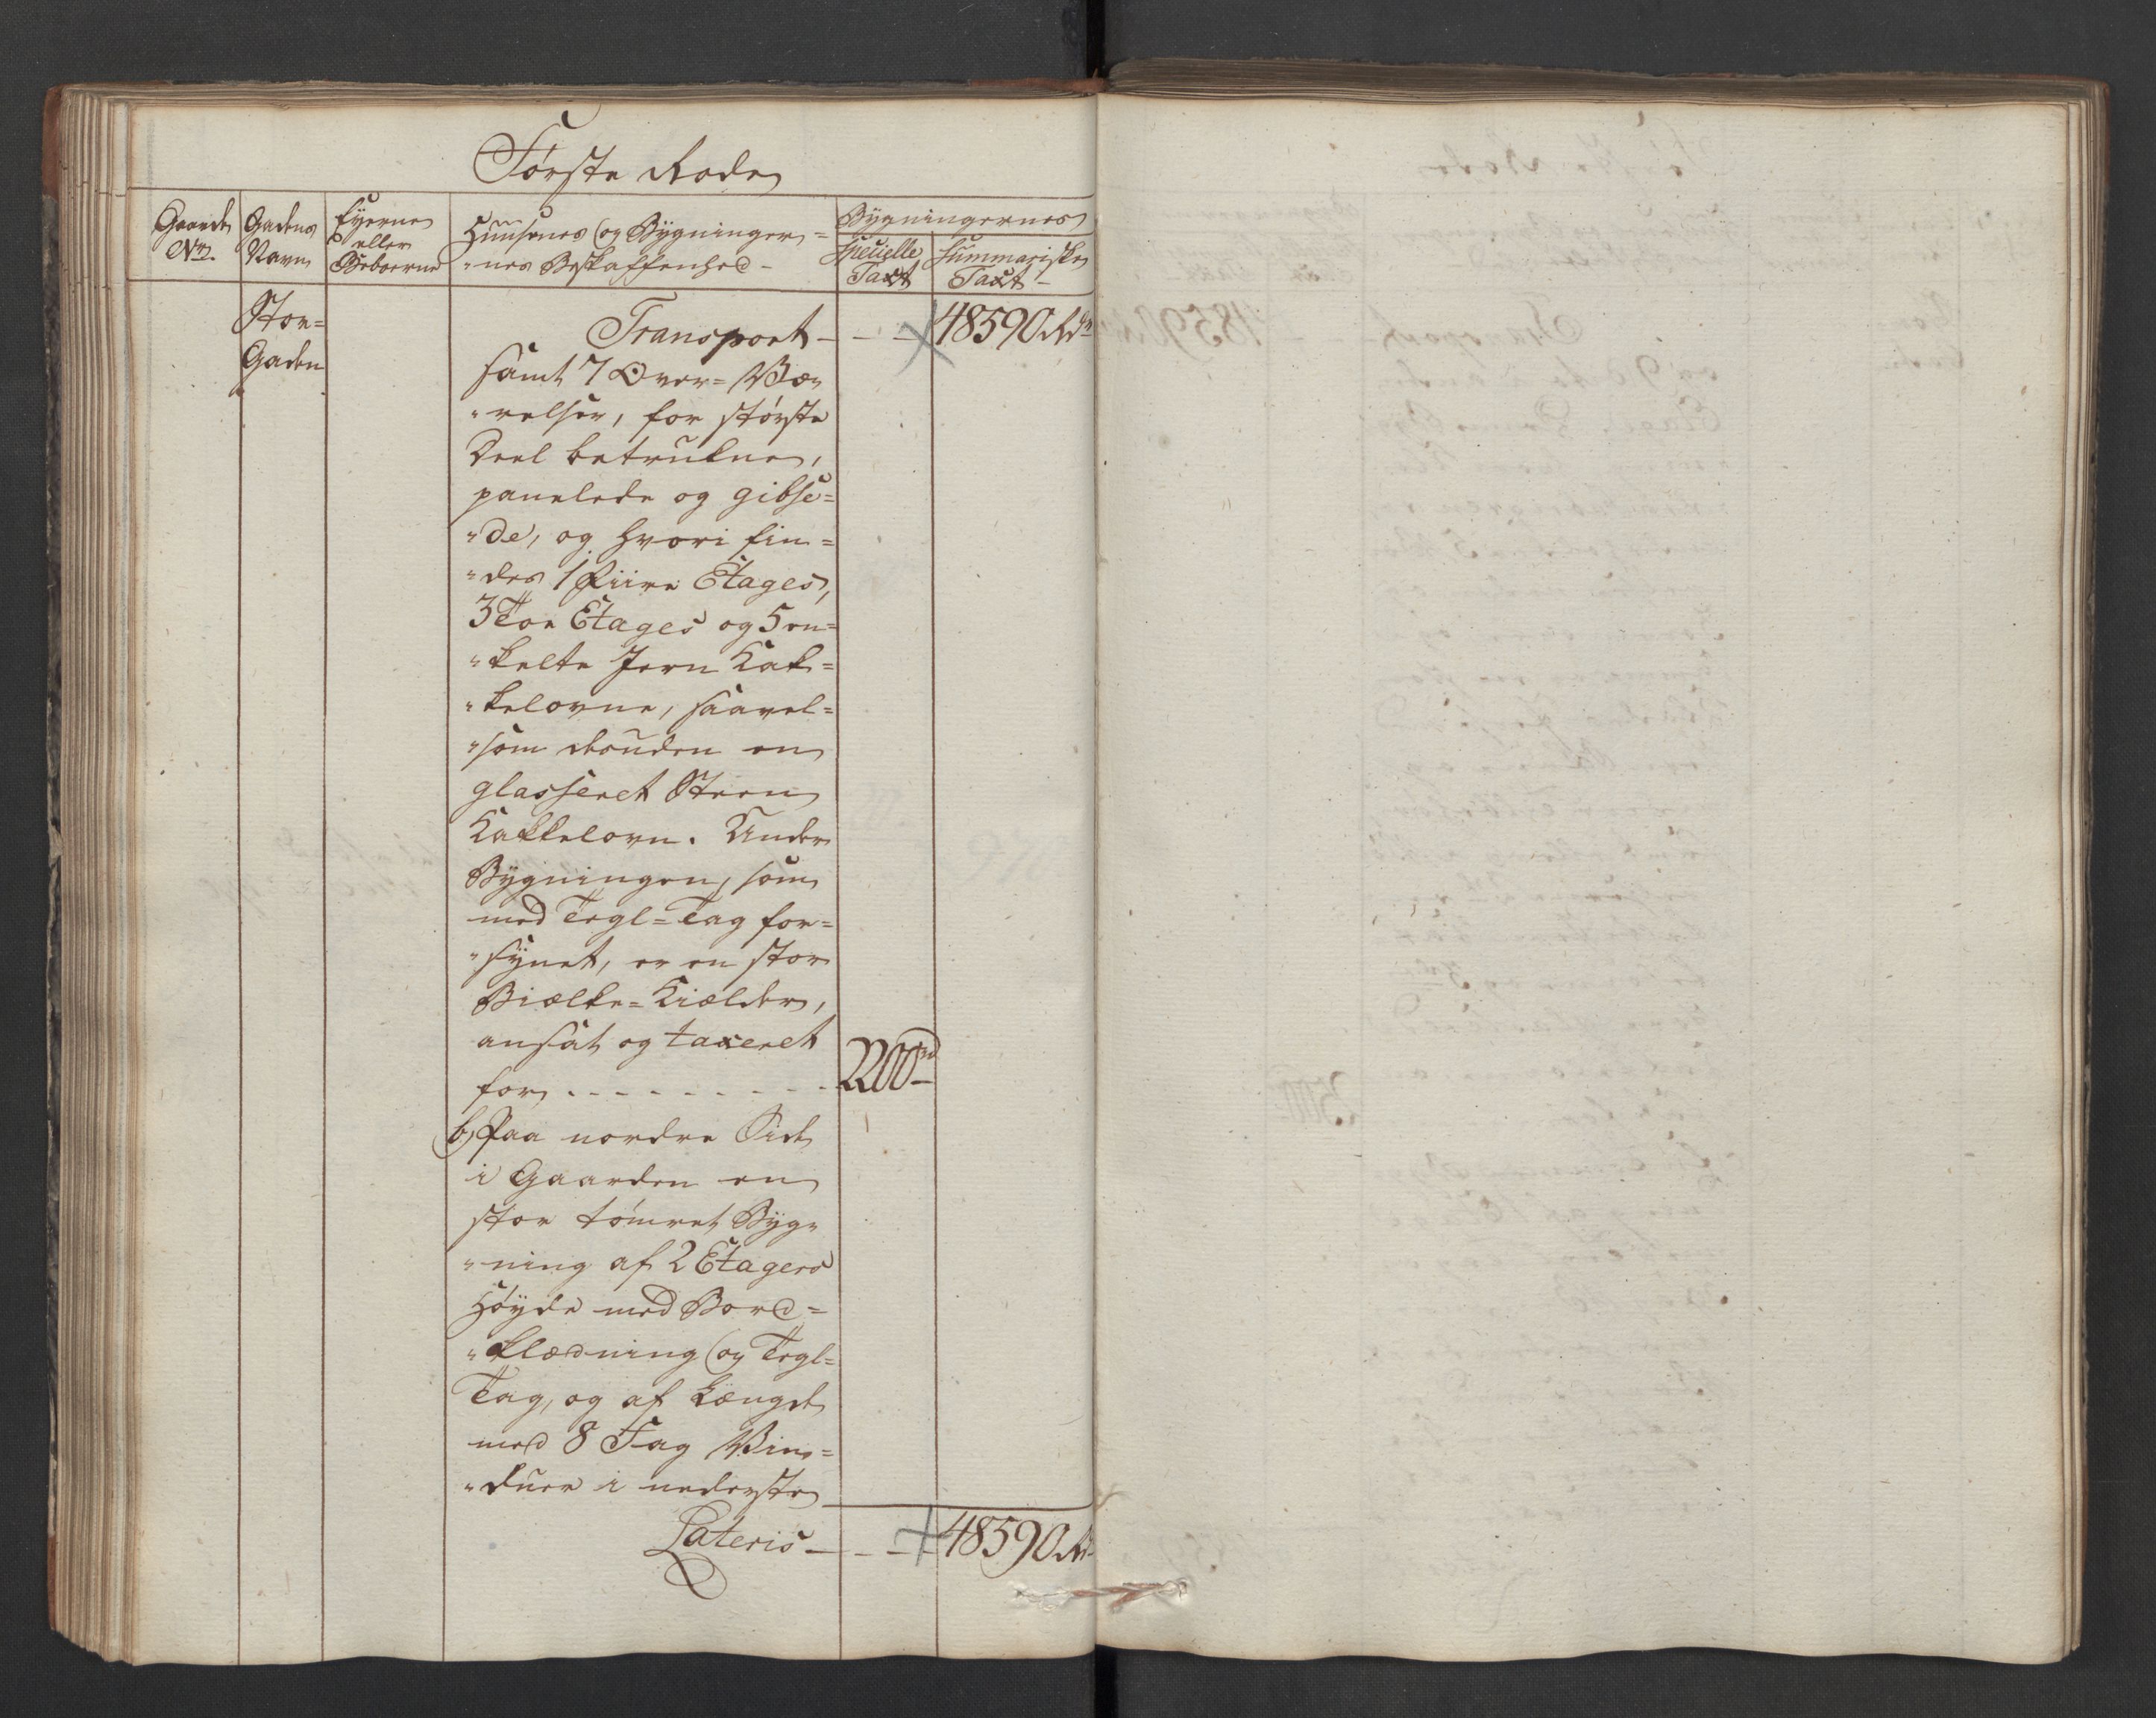 Første Rode
Gaards No. Gadens Navn Eyerne eller Beboerne Huusenes og Bygninger= „nes Beskaffenhed - Bygningernes Specielle Taxt Summariske Taxt -
Stor= Gaden
Transport - - - 48590 Rdr
samt 7 Over= Væ=
„relser, for største
Deel betrukne,
panelede og gibse=
„de, og hvori fin=
„des 1 Fiire Etages,
3 Toe Etages og 5 en=
„kelte Jern Kak=
„kelovne, saavel=
„som desuden en
glasseret Steen
Kakkelovn. Under
Bygningen, som
med Tegl=Tag for=
„synet, er en stor
Bielke=Kielder,
ansat og taxeret
for - - - - - - - - 2200 rd
b, Paa nordre Side
i Gaarden en
stor tømret Byg=
„ning af 2 Etagers
Høyde med Bord=
„klædning og Tegl=
Tag, og af Længde
med 8 Fag Vin=
„duer i nederste
Lateris - - - 48590 Rd